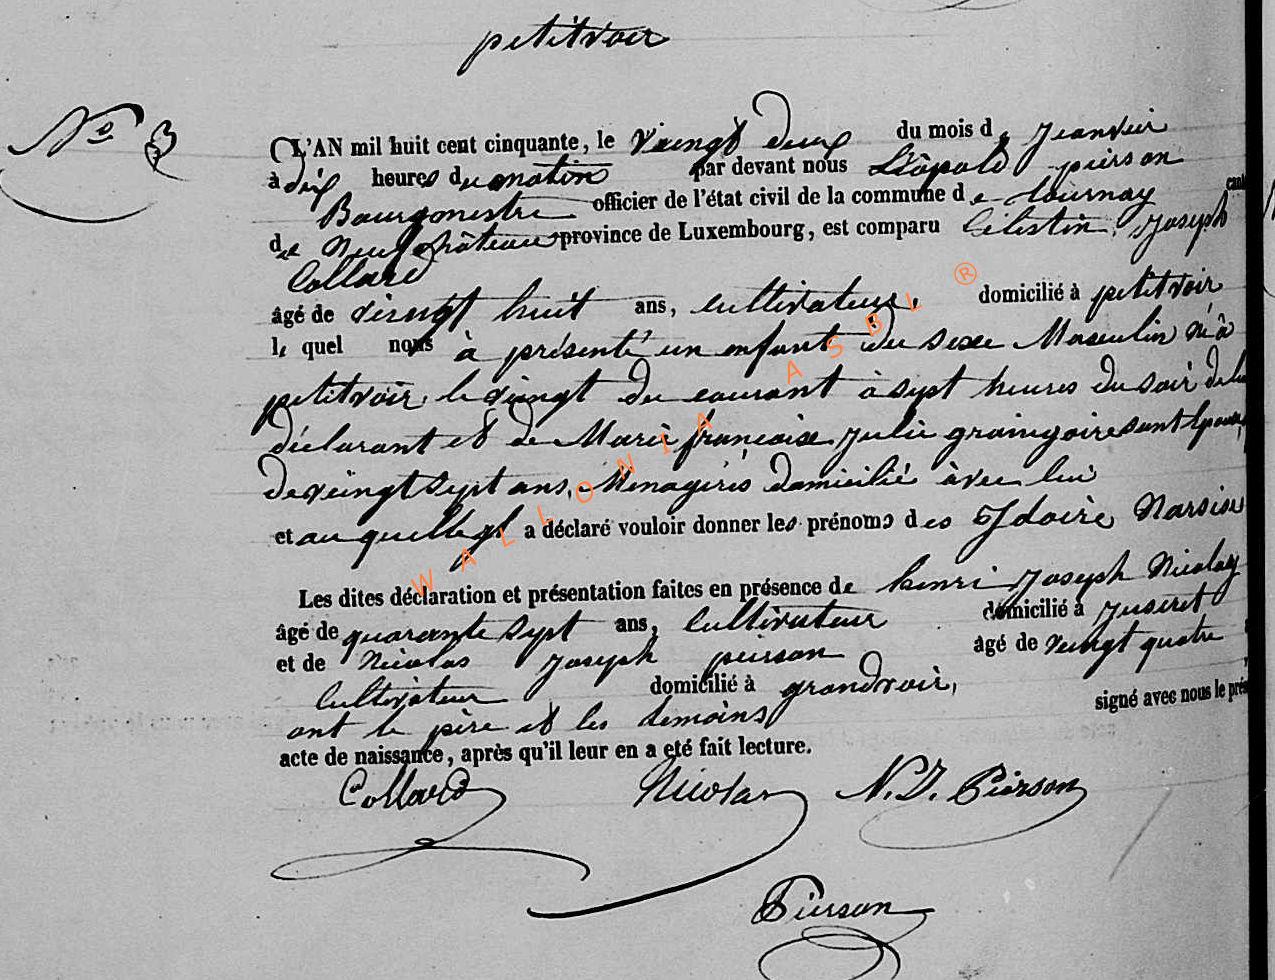 petitvoir
N° 3
L'AN mil huit cent cinquante, le vingt deux du mois de Jeanvier
à dix heures du matin par devant nous Léopold pierson
Bourgmestre officier de l'état civil de la commune de tournay
de Neufchâteau province de Luxembourg, est comparu Célestin Joseph
Collard
âgé de vingt huit ans, cultivateur. domicilié à petitvoir
le quel nous à présenté un enfant du sexe Masculin né à
petitvoir le vingt du courant à sept heures du soir de lui
déclarant et de Marie françoise Julie graingoire sont Epouse
de veingt sept ans, Menagère domicilié àvec lui
et au quel il a déclaré vouloir donner les prénoms des Isdoire Narsise
Les dites déclaration et présentation faites en présence de henri Joseph Nicolay
âgé de quarante sept ans, Cultivateur domicilié à Juseret
et de Nicolas Joseph peirson âgé de veingt quatre
Cultivateur domicilié à grandvoir,
ont le père et les temoins signé avec nous le
acte de naissance, après qu'il leur en a eté fait lecture.
Collard Nicolas N. J. Pierson
Pierson
WALLONIA ASBL ®